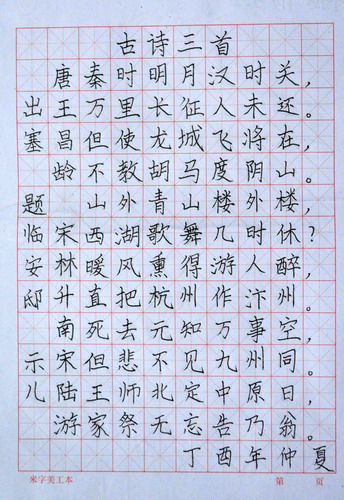 古诗三首
唐 秦时明月汉时关，
出 王 万里长征人未还。
塞 昌 但使龙城飞将在，
龄 不教胡马度阴山。
题 山外青山楼外楼，
临 宋 西湖歌舞几时休？
安 林 暖风熏得游人醉，
邸 升 直把杭州作汴州。
南 死去元知万事空，
示 宋 但悲不见九州同。
儿 陆 王师北定中原日，
游 家祭无忘告乃翁。
丁酉年仲夏
米字美工本 第 页